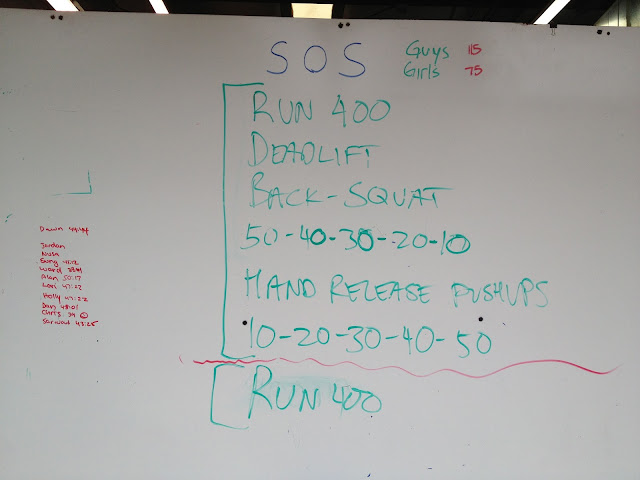 SOS
Guys 115
Girls 75
RUN 400
DEADLIFT
BACK-SQUAT
50-40-30-20-10
HAND RELEASE PUSHUPS
10-20-30-40-50
RUN 400
Dawn
Jordan
Nusa
Ward
Alan 50:17
Lori 47:22
Holly 47:22
Dan 48:01
Chris 39
Sarwad 43:25